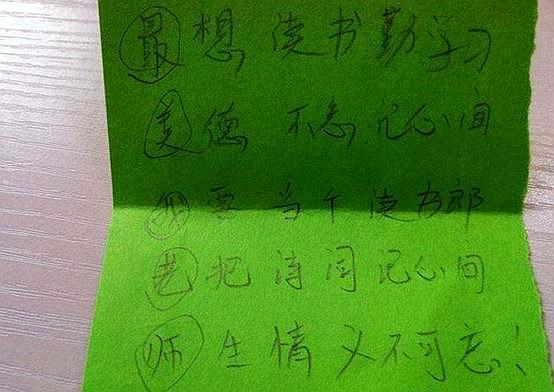 最想读书勤学习
美德不忘记心间
我要当个读书郎
老把诗词记心间
师生情义不可忘!